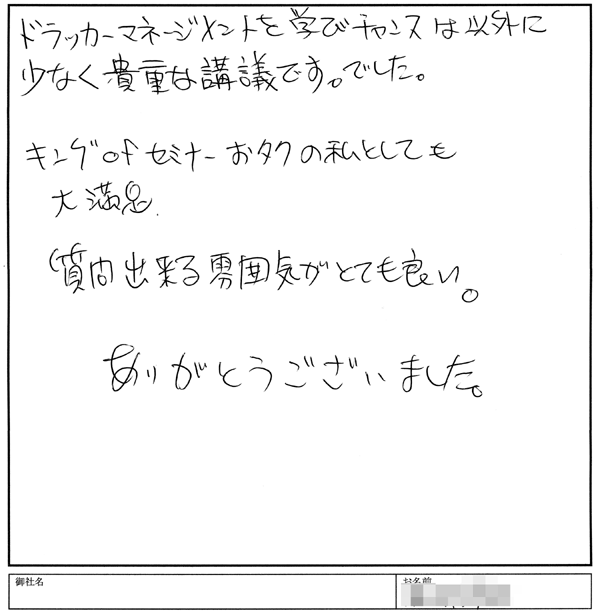 ドラッカーマネージメントを学びチャンスは以外に
少なく貴重な講議です。でした。
キングofセミナーおタクの私としても
大満足.
質問出来る雰囲気がとても良い。
ありがとうございました。
御社名
お名前